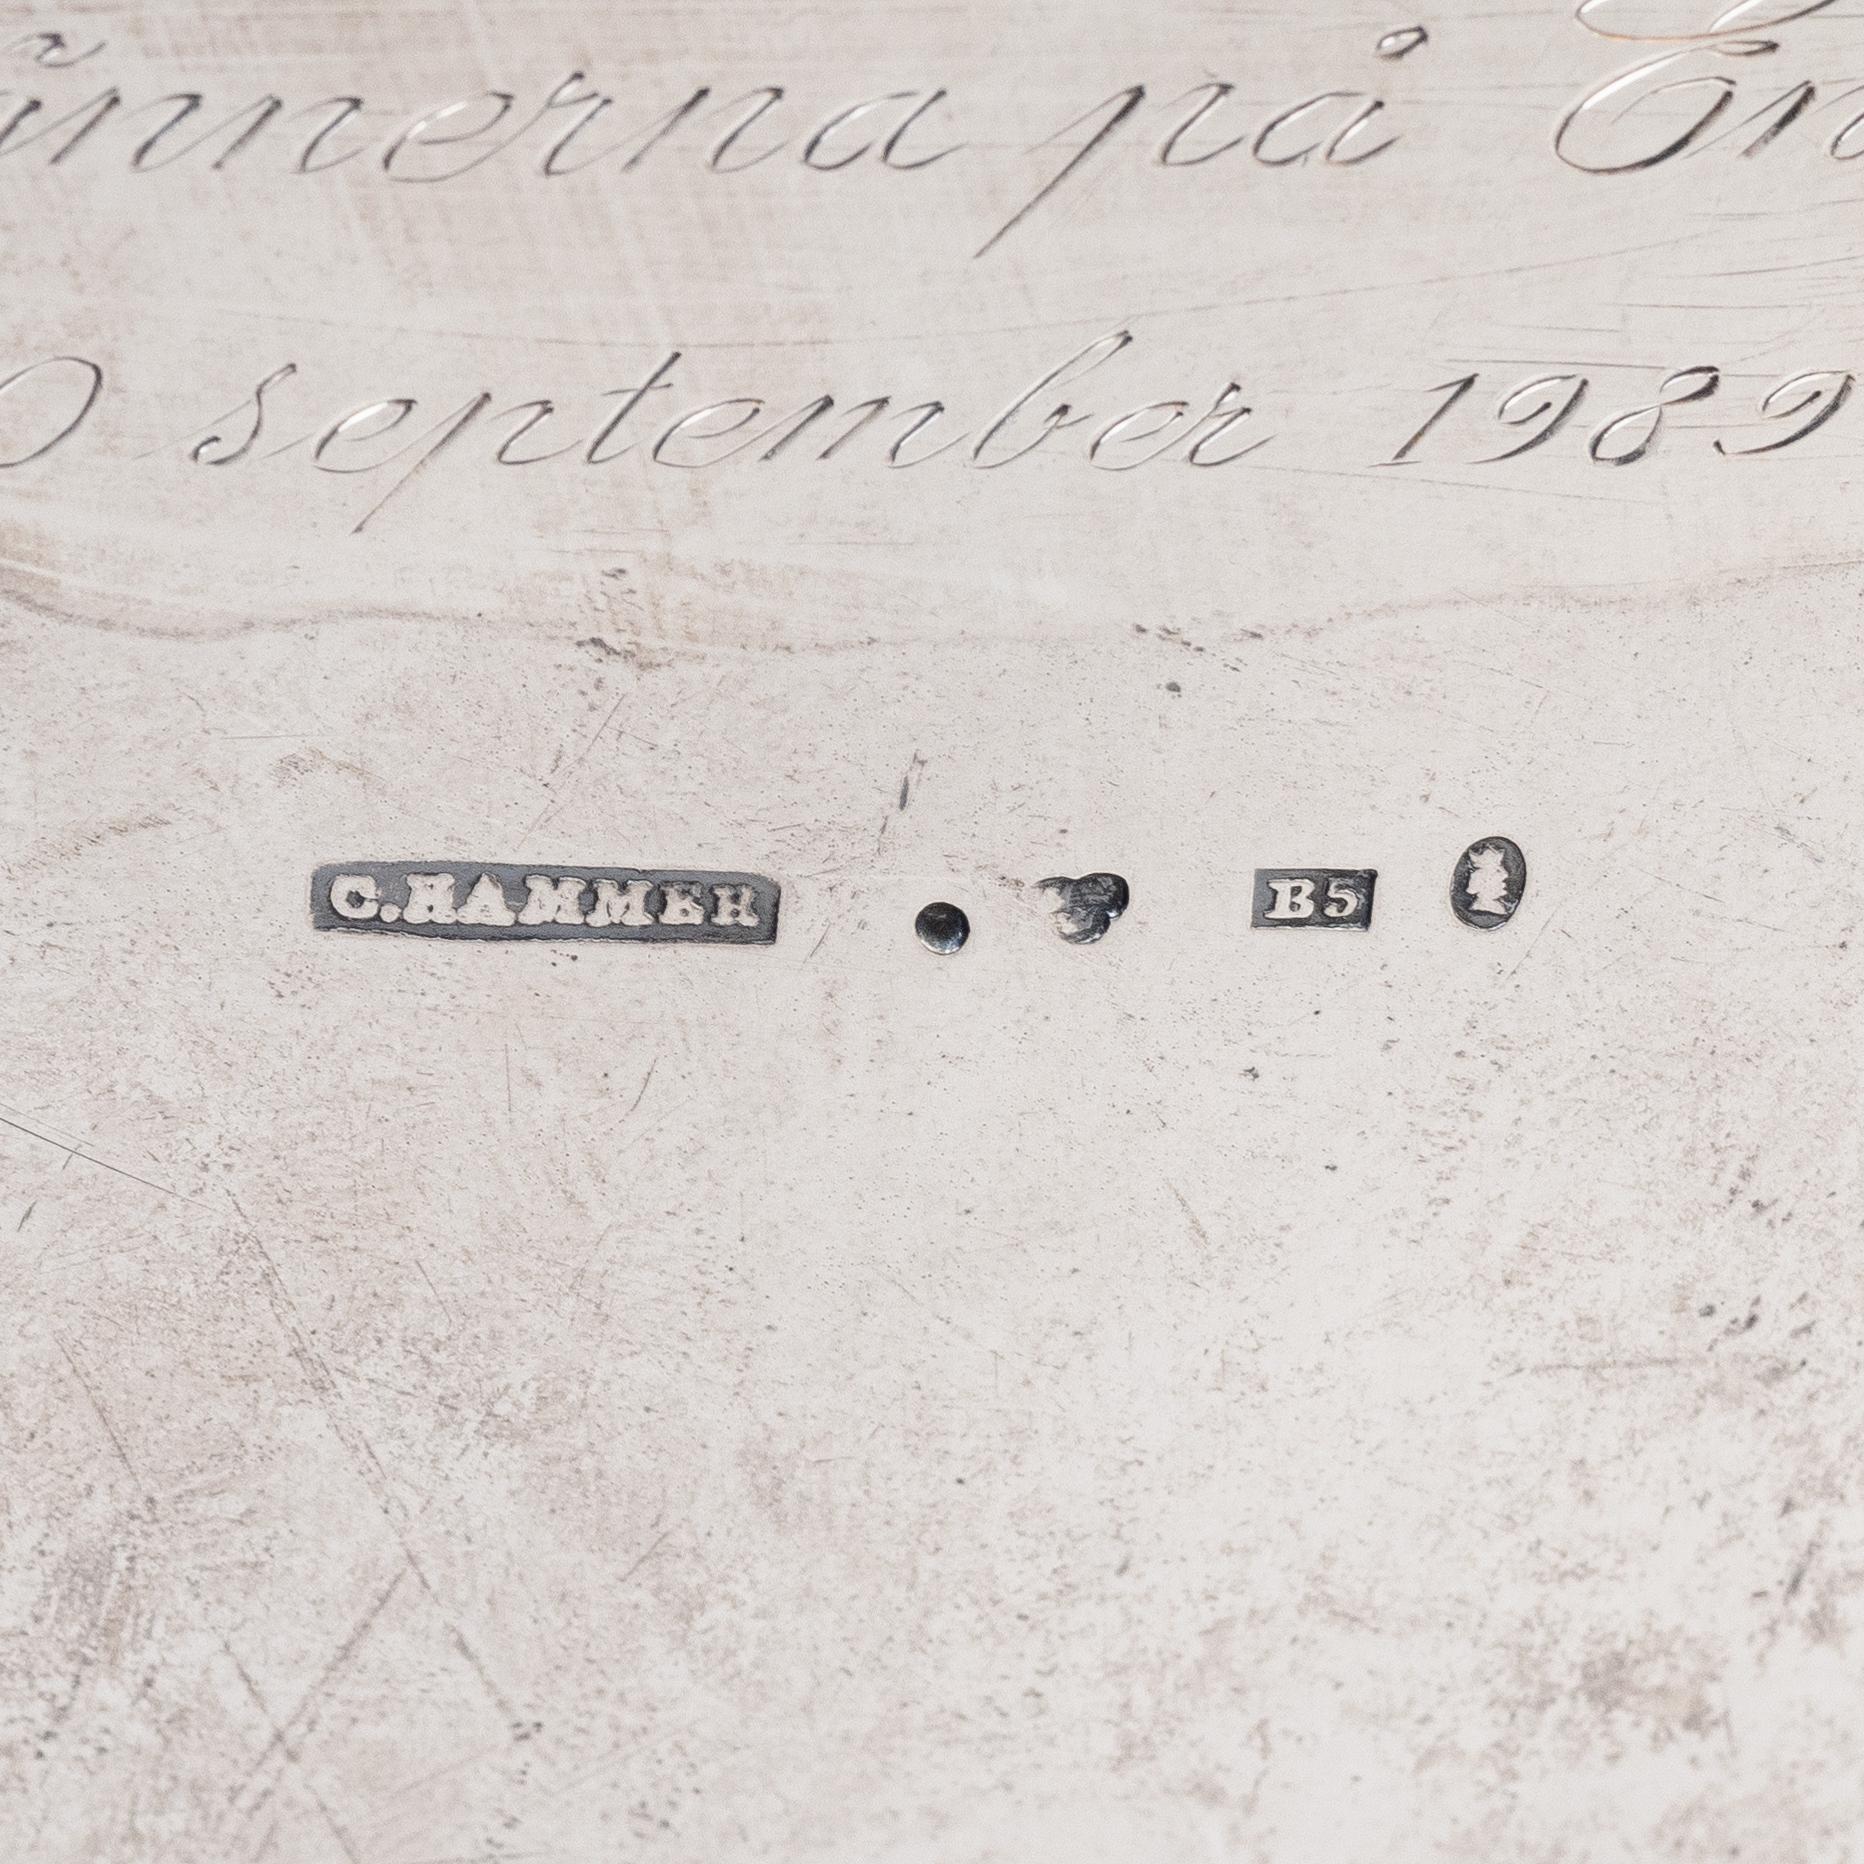 ännerna på En
0 september 1989
C.HAMMER B5